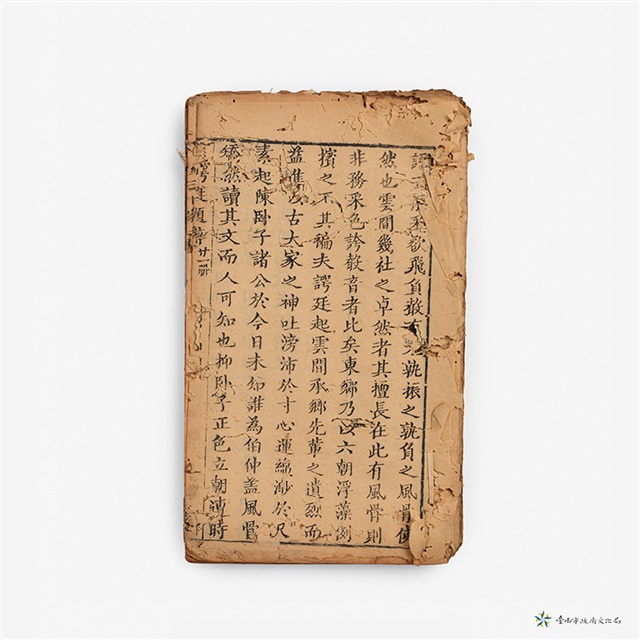 語云 飛負 有 孰振之孰負之風骨使
然也雲間幾社之卓然者其擅長在此有風骨則
非務采色誇敦音者此矣東鄉乃以六朝浮藻測
擯之不其褊夫諤廷起雲間承鄉先軰之遺烈而
益進以古大家之神吐滂沛於寸心運綿渺於尺
素起陳卧子諸公於今日未知誰為伯仲盖風骨
矯然讀其文而人可知也抑卧子正色立朝 時
諤廷 廿一冊
臺南市政府文化局